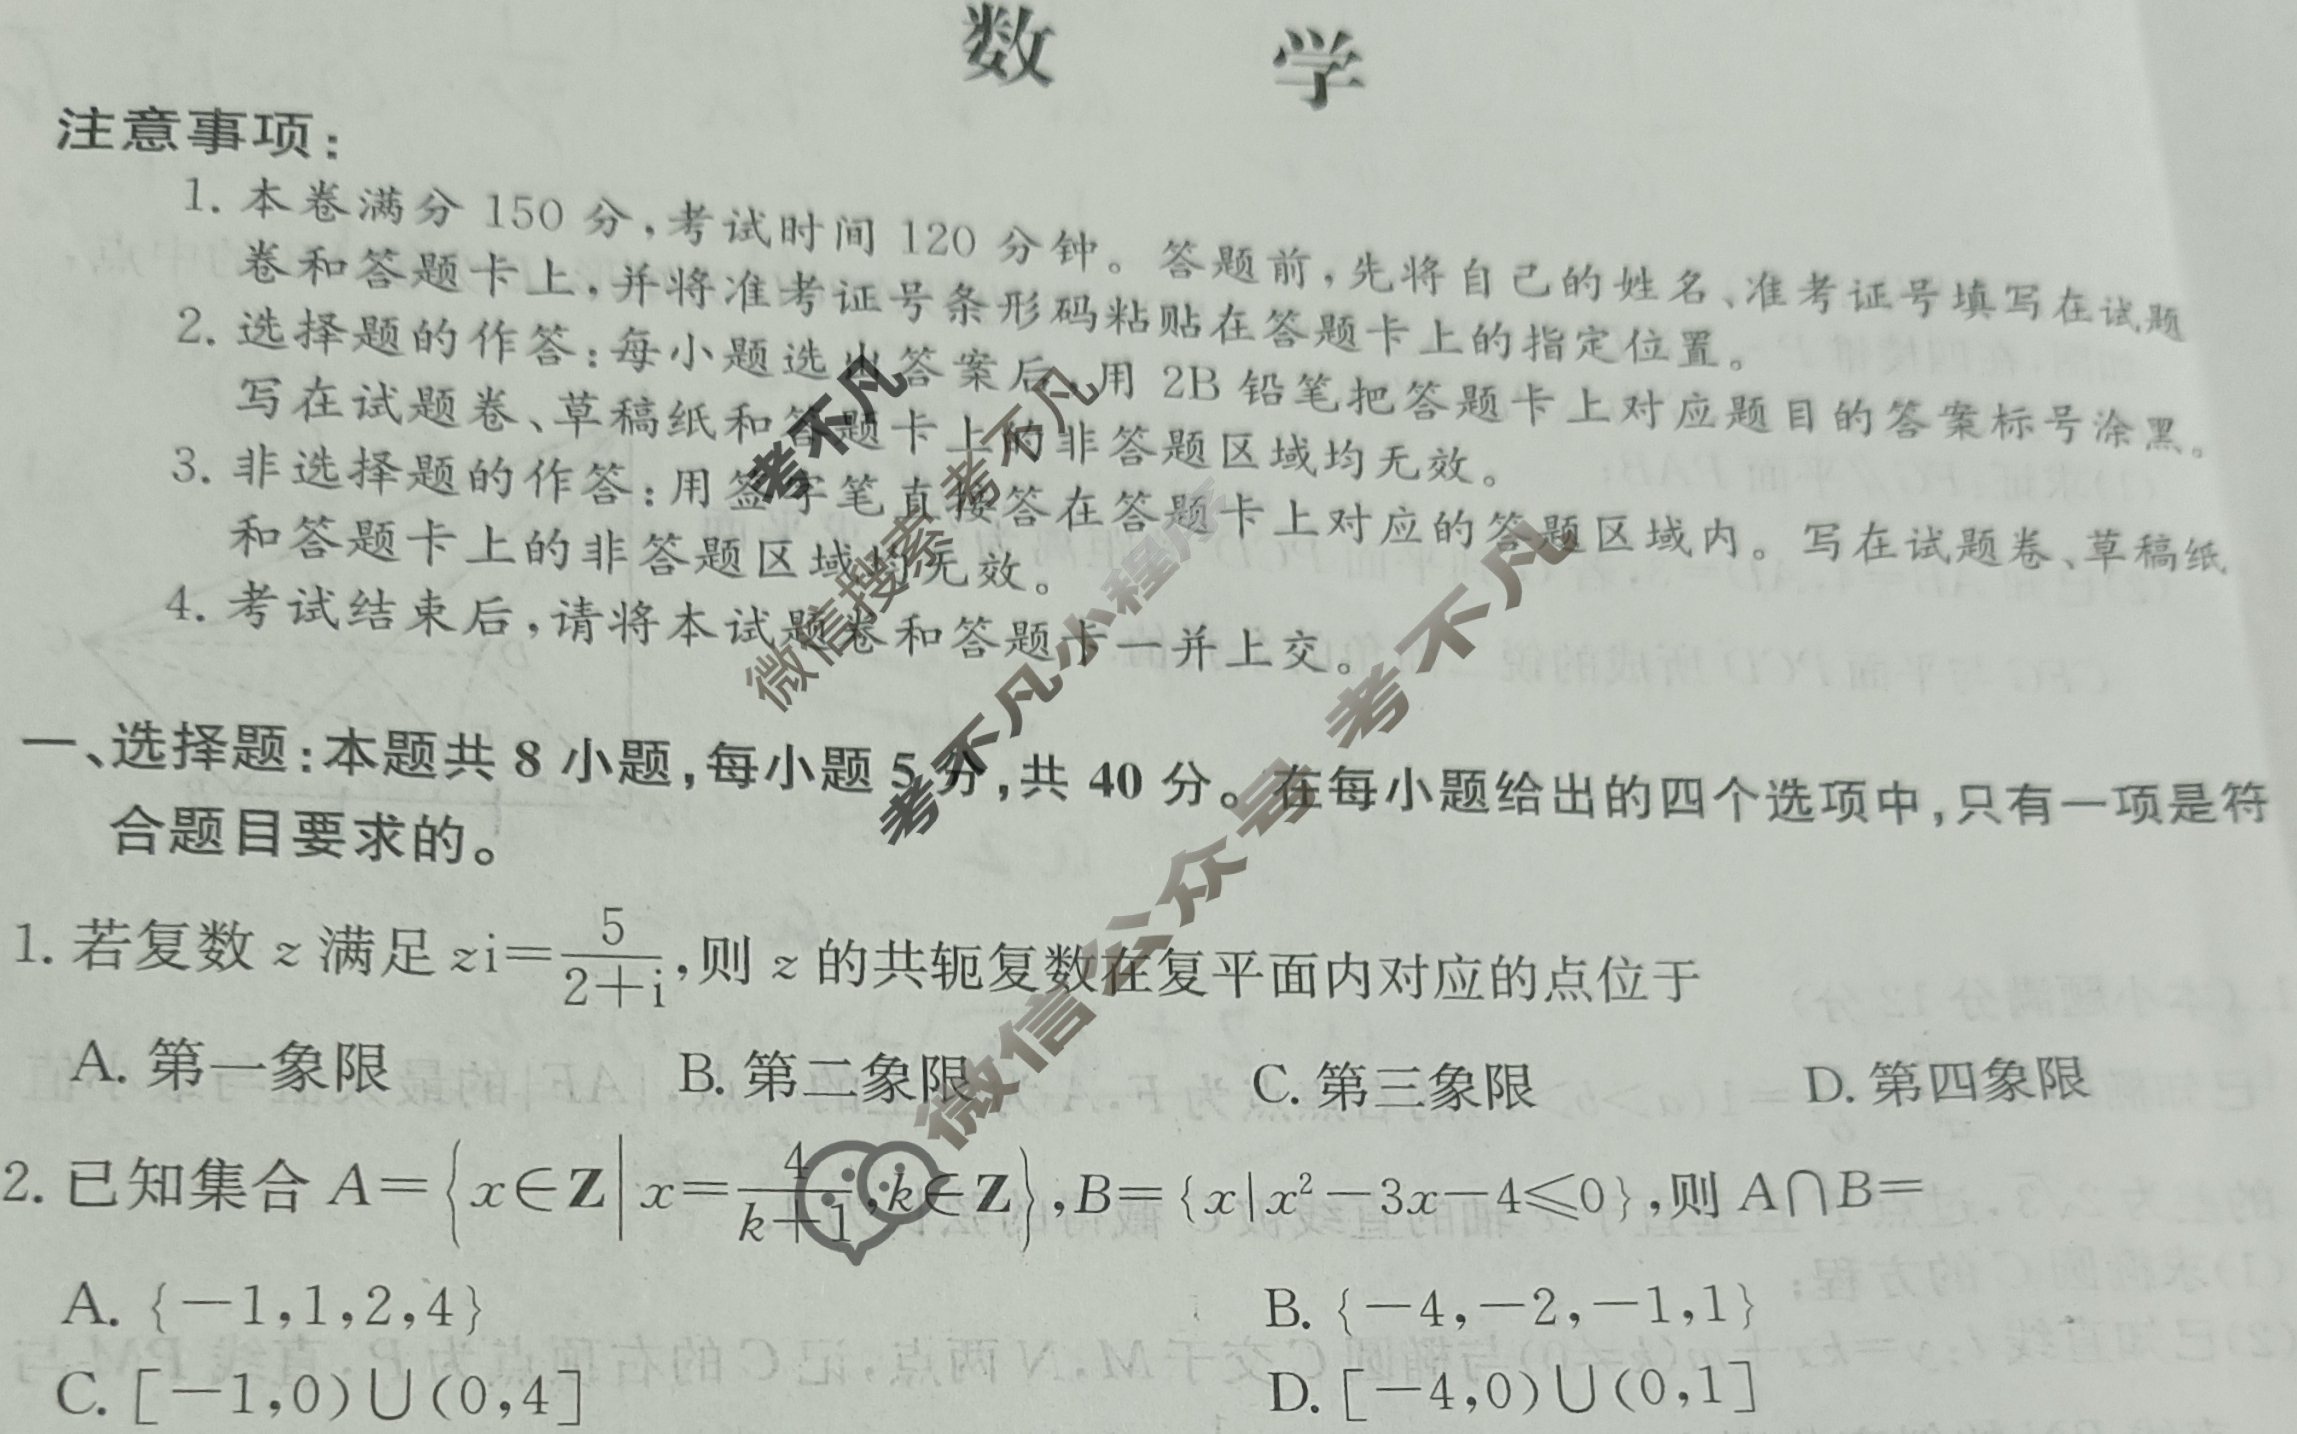 数 学
注意事项:
1. 本卷满分 150 分,考试时间 120 分钟。答题前,先将自己的姓名、准考证号填写在试题
卷和答题卡上,并将准考证号条形码粘贴在答题卡上的指定位置。
2. 选择题的作答:每小题选出答案后,用 2B 铅笔把答题卡上对应题目的答案标号涂黑。
写在试题卷、草稿纸和答题卡上的非答题区域均无效。
3. 非选择题的作答:用签字笔直接答在答题卡上对应的答题区域内。写在试题卷、草稿纸
和答题卡上的非答题区域均无效。
4. 考试结束后,请将本试题卷和答题卡一并上交。
一、选择题:本题共 8 小题,每小题 5 分,共 40 分。在每小题给出的四个选项中,只有一项是符
合题目要求的。
1. 若复数 z 满足 zi=5/(2+i),则 z 的共轭复数在复平面内对应的点位于
A. 第一象限 B. 第二象限 C. 第三象限 D. 第四象限
2. 已知集合 A={x∈Z|x=4/(k+1),k∈Z},B={x|x²-3x-4≤0},则 A∩B=
A. {-1,1,2,4} B. {-4,-2,-1,1}
C. [-1,0)∪(0,4] D. [-4,0)∪(0,1]
考不凡
微信搜索 考不凡
考不凡小程序
微信公众号 考不凡